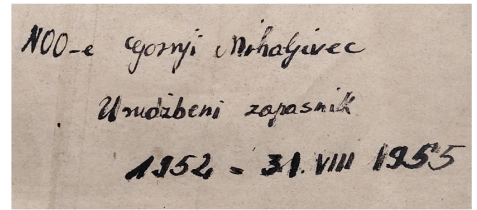 NOO-e Gornji Mihaljevec
Urudžbeni zapisnik
1952 - 31. VIII 1955